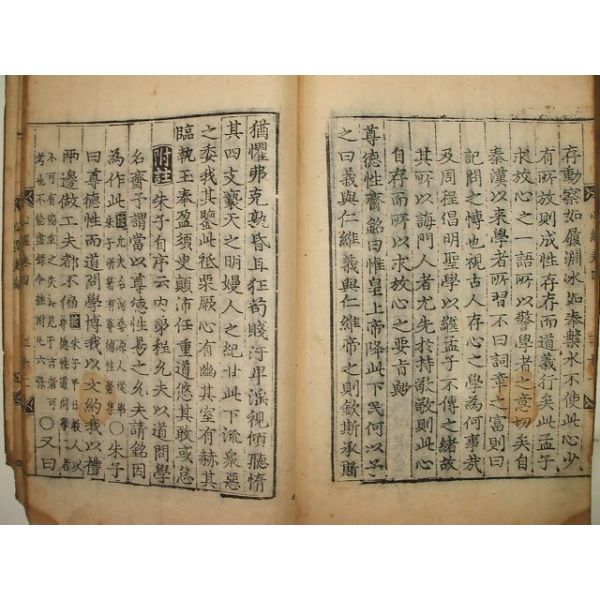 存動察如履淵冰如奉槃水不使此心少
有所放則成性存存而道義行矣此孟子
求放心之一語所以警學者之意切矣自
秦漢以來學者所習不曰詞章之富則曰
記問之博也視古人存心之學為何事哉
及周程倡明聖學以繼孟子不傳之緒故
其所以誨門人者尤先於持敬敬則此心
自存而所以求放心之要旨歟
尊德性齋銘曰惟皇上帝降此下民何以予
之曰義與仁維義與仁維帝之則欽斯承斯
猶懼弗克孰昏且狂苟賤汙卑淫視傾聽惰
其四支褻天之明嫚人之紀甘此下流衆惡
之委我其鑒此祗栗厥心有幽其室有赫其
臨執玉奉盈須臾顛沛任重道悠其敢或怠
附註 朱子有序云內弟程允夫以道問學
名齋予謂當以尊德性易之允夫請銘因
為作此 ○朱子
曰尊德性而道問學博我以文約我以禮
兩邊做工夫都不偏
○又曰